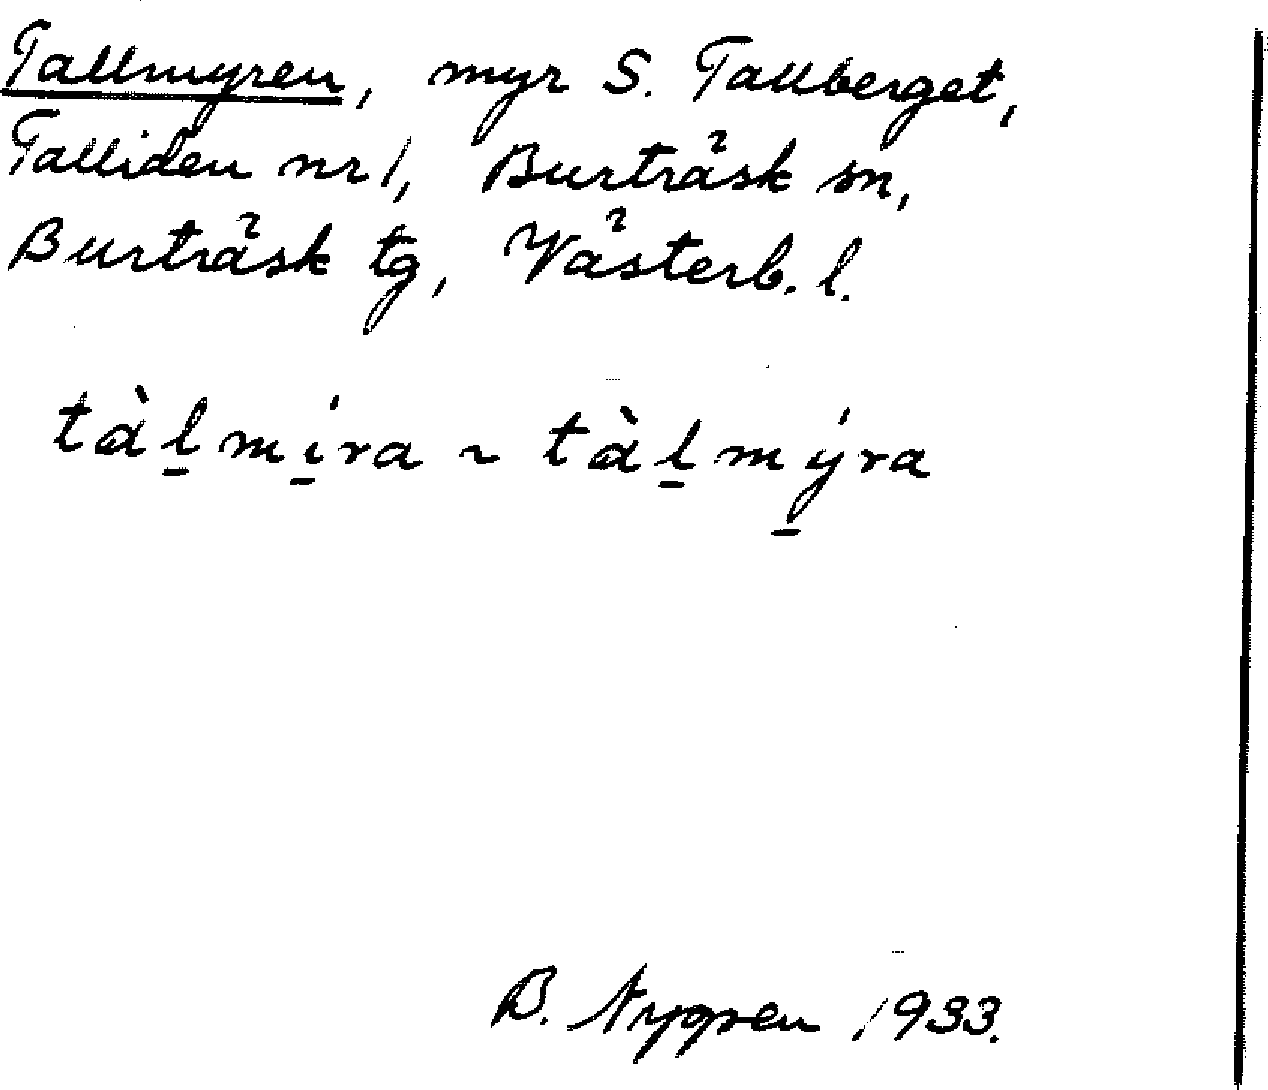 Tallmyren, myr S. Tallberget,
Talliden nr 1, Burträsk sn,
Burträsk tg, Västerb. l.
tàl̲mí̲ra ~ tàl̲mý̲ra
B. Nygren 1933.